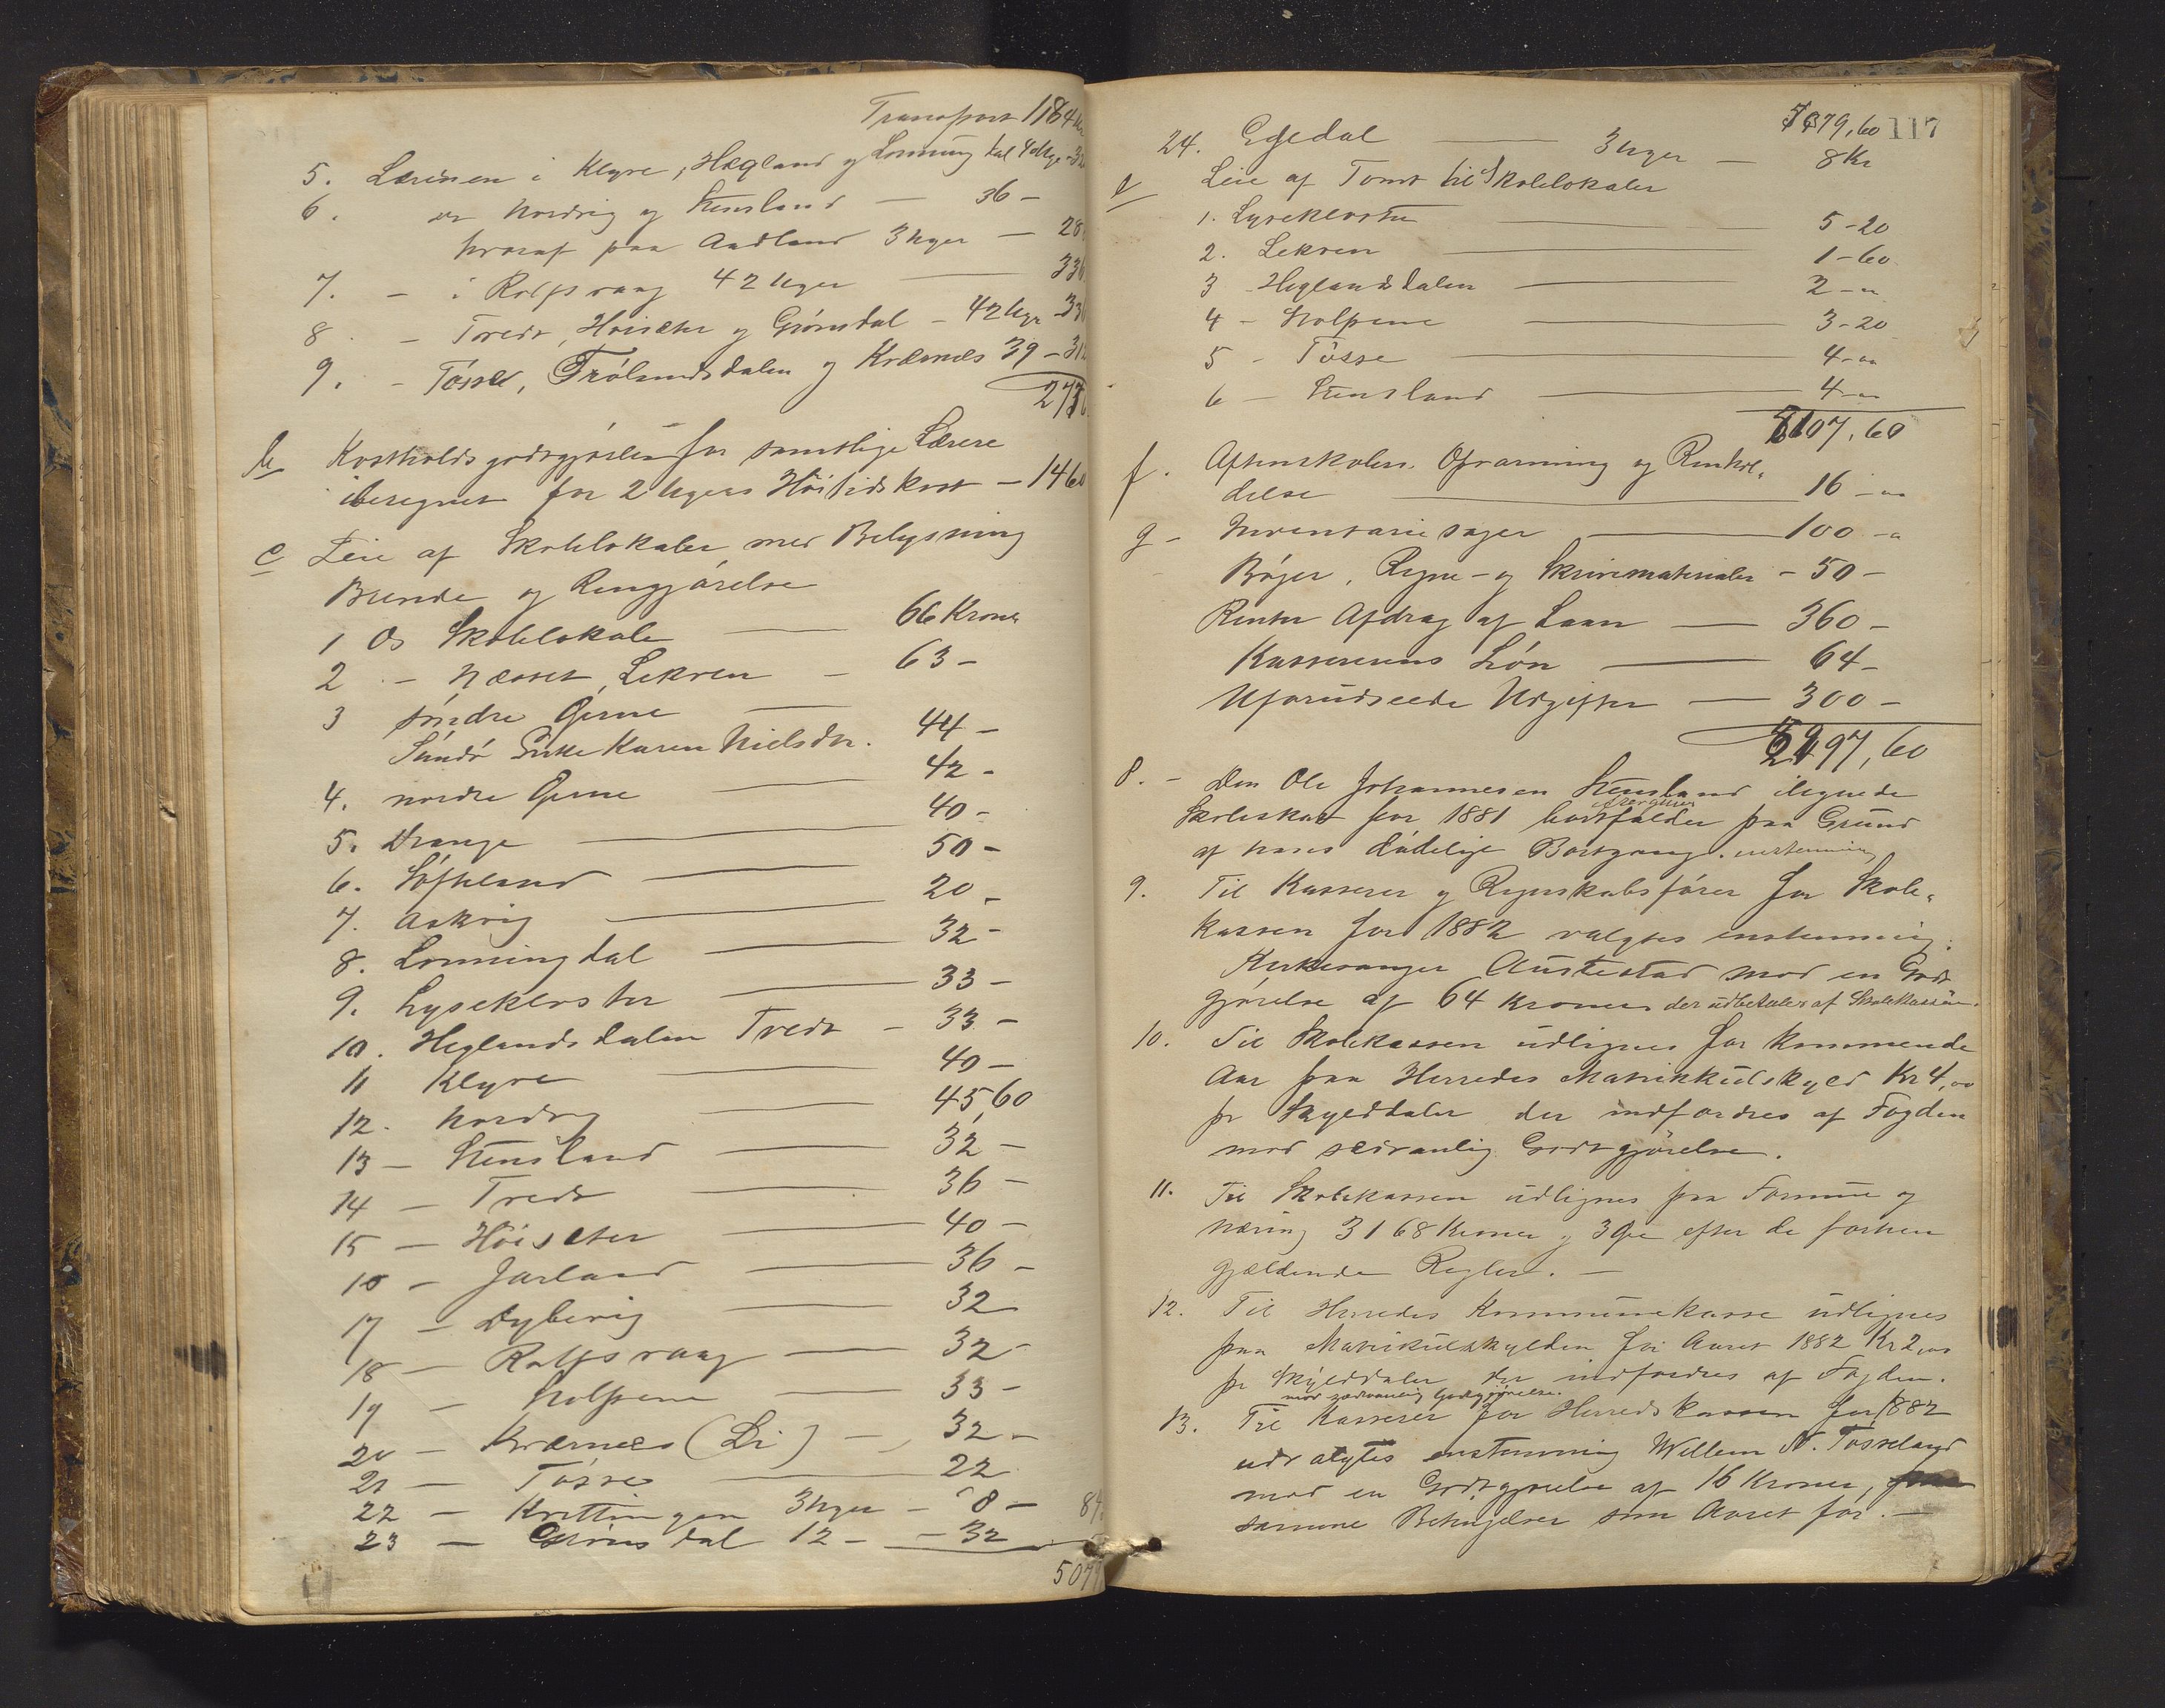 Transport 1184 Kr
5. Læreren i Klyve, Hegland og Lønningdal 40 Uger - 32
6. " Nordvig og Stensland — 36 -
hvoraf paa Aadland 3 Uger — 28
7. - i Rolfsvaag 42 Uger — 336
8 - Tveit, Høiseter og Gjönsdal - 42 Uger - 33
9. - Tösse, Trölandsdalen og Kvernes 39 - 312
273
b Kostholdsgodtgjörelse for samtlige Lærere
iberegnet for 2 Ugers Höitidskost - 1460
c Leie af Skolelokaler med Belysning
Brende og Rengjörelse
1 Os Skolelokale — 66 Kroner
2 - Næsset, Lekven - 63 -
3 söndre Öerne —
Sundö Enke Karen Nielsdtr. 44 -
4. nordre Öerne — 42 -
5. Drange — 40 -
6. Söfteland — 50 -
7. Askvig — 20 -
8. Lønningdal — 32 -
9. Lysekloster — 33 -
10. Heglandsdalen Tveit - 33 -
11 Klyve — 40 -
12. Nordvig — 45,60
13 - Stensland — 32 -
14 - Tveit — 36 -
15 - Höiseter — 40 -
16 - Jarland — 36 -
17 - Dybevig — 32
18 - Rolfsvaag — 32 -
19 - Kolpene — 33 -
20 - Kvernes (Li) - 32 -
21 - Tösse — 22
22 - Kvittingen 3 Uger - 8 -
23 - Gjönsdal 12 - - 32
507
5079,60 117
24. Egedal — 3 Uger — 8 Kr
Leie af Tomt til Skolelokaler
1. Lysekloster — 5-20
2. Lekven — 1-60
3 - Heglandsdalen — 2 - "
4 - Kolpene — 3-20
5 - Tösse — 4 - "
6 - Stensland — 4 - "
5107,60
f. Aftenskolers Opvarmning og Renhol-
delse — 16 - "
g - Inventariesager — 100 - "
Böger, Regne- og Skrivematerialer - 50 -
Renter Afdrag af Laan — 360 -
Kassererens Lön — 64 -
Uforudseede Udgifter — 300 -
97,60
8. - Den Ole Johannesen Stensland ilignede
Skoleskat for 1881 bortfalder paa Grund
af hans dödelige Bortgang. enstemmig
9. Til Kasserer og Regnskabsförer for Skole-
kassen for 1882 valgtes enstemmig:
Kirkesanger Austestad mod en Godt
gjörelse af 64 Kroner der udbetales af Skolekassen.
10. Til Skolekassen udlignes for kommende
Aar paa Herredes Matrikkulskyld Kr 4,00
pr Skylddaler der indfordres af Fogden
mod sedvanlig Godtgjörelse.
11. Til Skolekassen udlignes paa Formue og
Næring 3168 Kroner og 3 Öre efter de forhen
gjældende Regler. —
12. Til Herredes Kommunekasse udlignes
paa Matrikulskylden for Aaret 1882 Kr 2,00
pr Skylddaler der indfordres af Fogden.
mod sædvanlig Godtgjörelse.
13. Til Kasserer for Herredskassen for 1882
udvalgtes enstemmig Willem N. Tösseland
mod en Godtgjörelse af 16 Kroner,
samme Betingelser som Aaret för. —